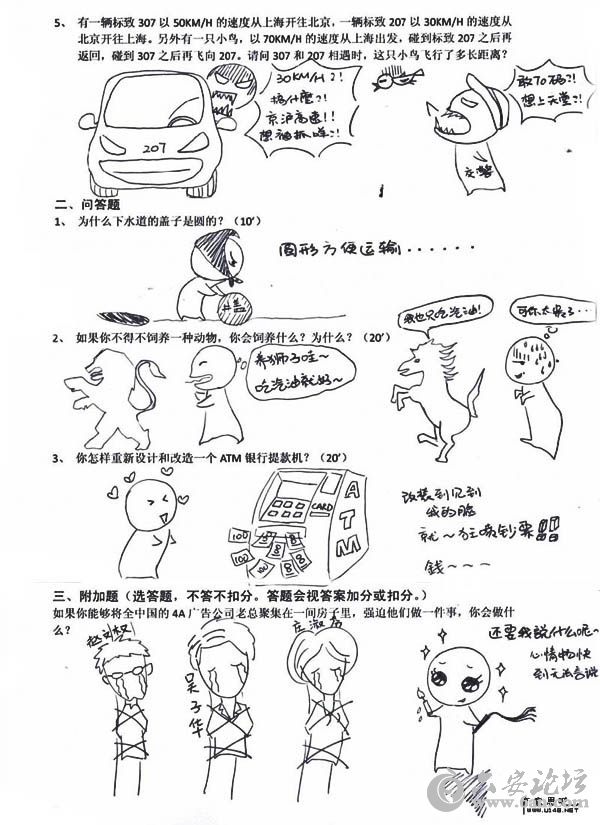 5、 有一辆标致 307 以 50KM/H 的速度从上海开往北京，一辆标致 207 以 30KM/H 的速度从
北京开往上海。另外有一只小鸟，以 70KM/H 的速度从上海出发，碰到标致 207 之后再
返回，碰到 307 之后再飞向 207。请问 307 和 207 相遇时，这只小鸟飞行了多长距离？
30KM/H?!
搞什麼?!
京沪高速!!
想被抓咩?!
敢70码?!
想上天堂?!
207
交警
二、问答题
1、 为什么下水道的盖子是圆的？（10'）
圆形方便运输······
盖
2、 如果你不得不饲养一种动物，你会饲养什么？为什么？（20'）
养狮子哇~
吃汽油就好~
我也只吃汽油!
可你太贵了···
3、 你怎样重新设计和改造一个 ATM 银行提款机？（20'）
CARD
ATM
100
100
100
改装到见到
我的脸
就~狂喷钞票
錢~~~
三、附加题（选答题，不答不扣分。答题会视答案加分或扣分。）
如果你能够将全中国的 4A 广告公司老总聚集在一间房子里，强迫他们做一件事，你会做什
么？
吴子华
庄淑芬
还要我说什么呢~
心情愉快
到无法言说